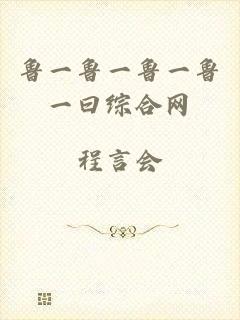 鲁一鲁一鲁一鲁
一曰综合网
程言会